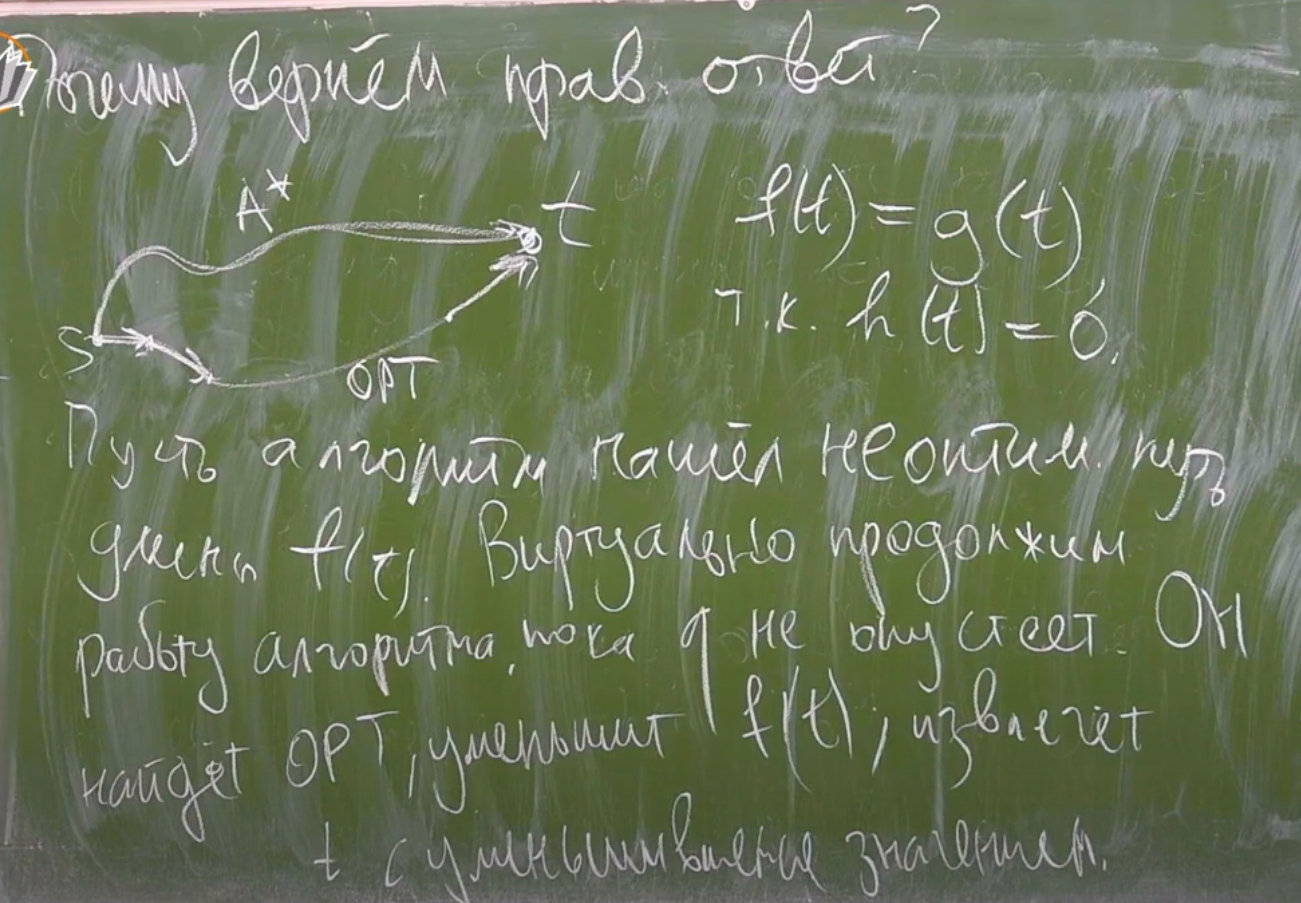 Почему вернём прав. ответ?
A*
t
f(t) = g(t)
т.к. h(t) = 0.
S
OPT
Пусть алгоритм нашёл неоптим. путь
длины f(t). Виртуально продолжим
работу алгоритма, пока q не опустеет. Он
найдёт OPT, уменьшит f(t), извлечёт
t с уменьшившемся значением.